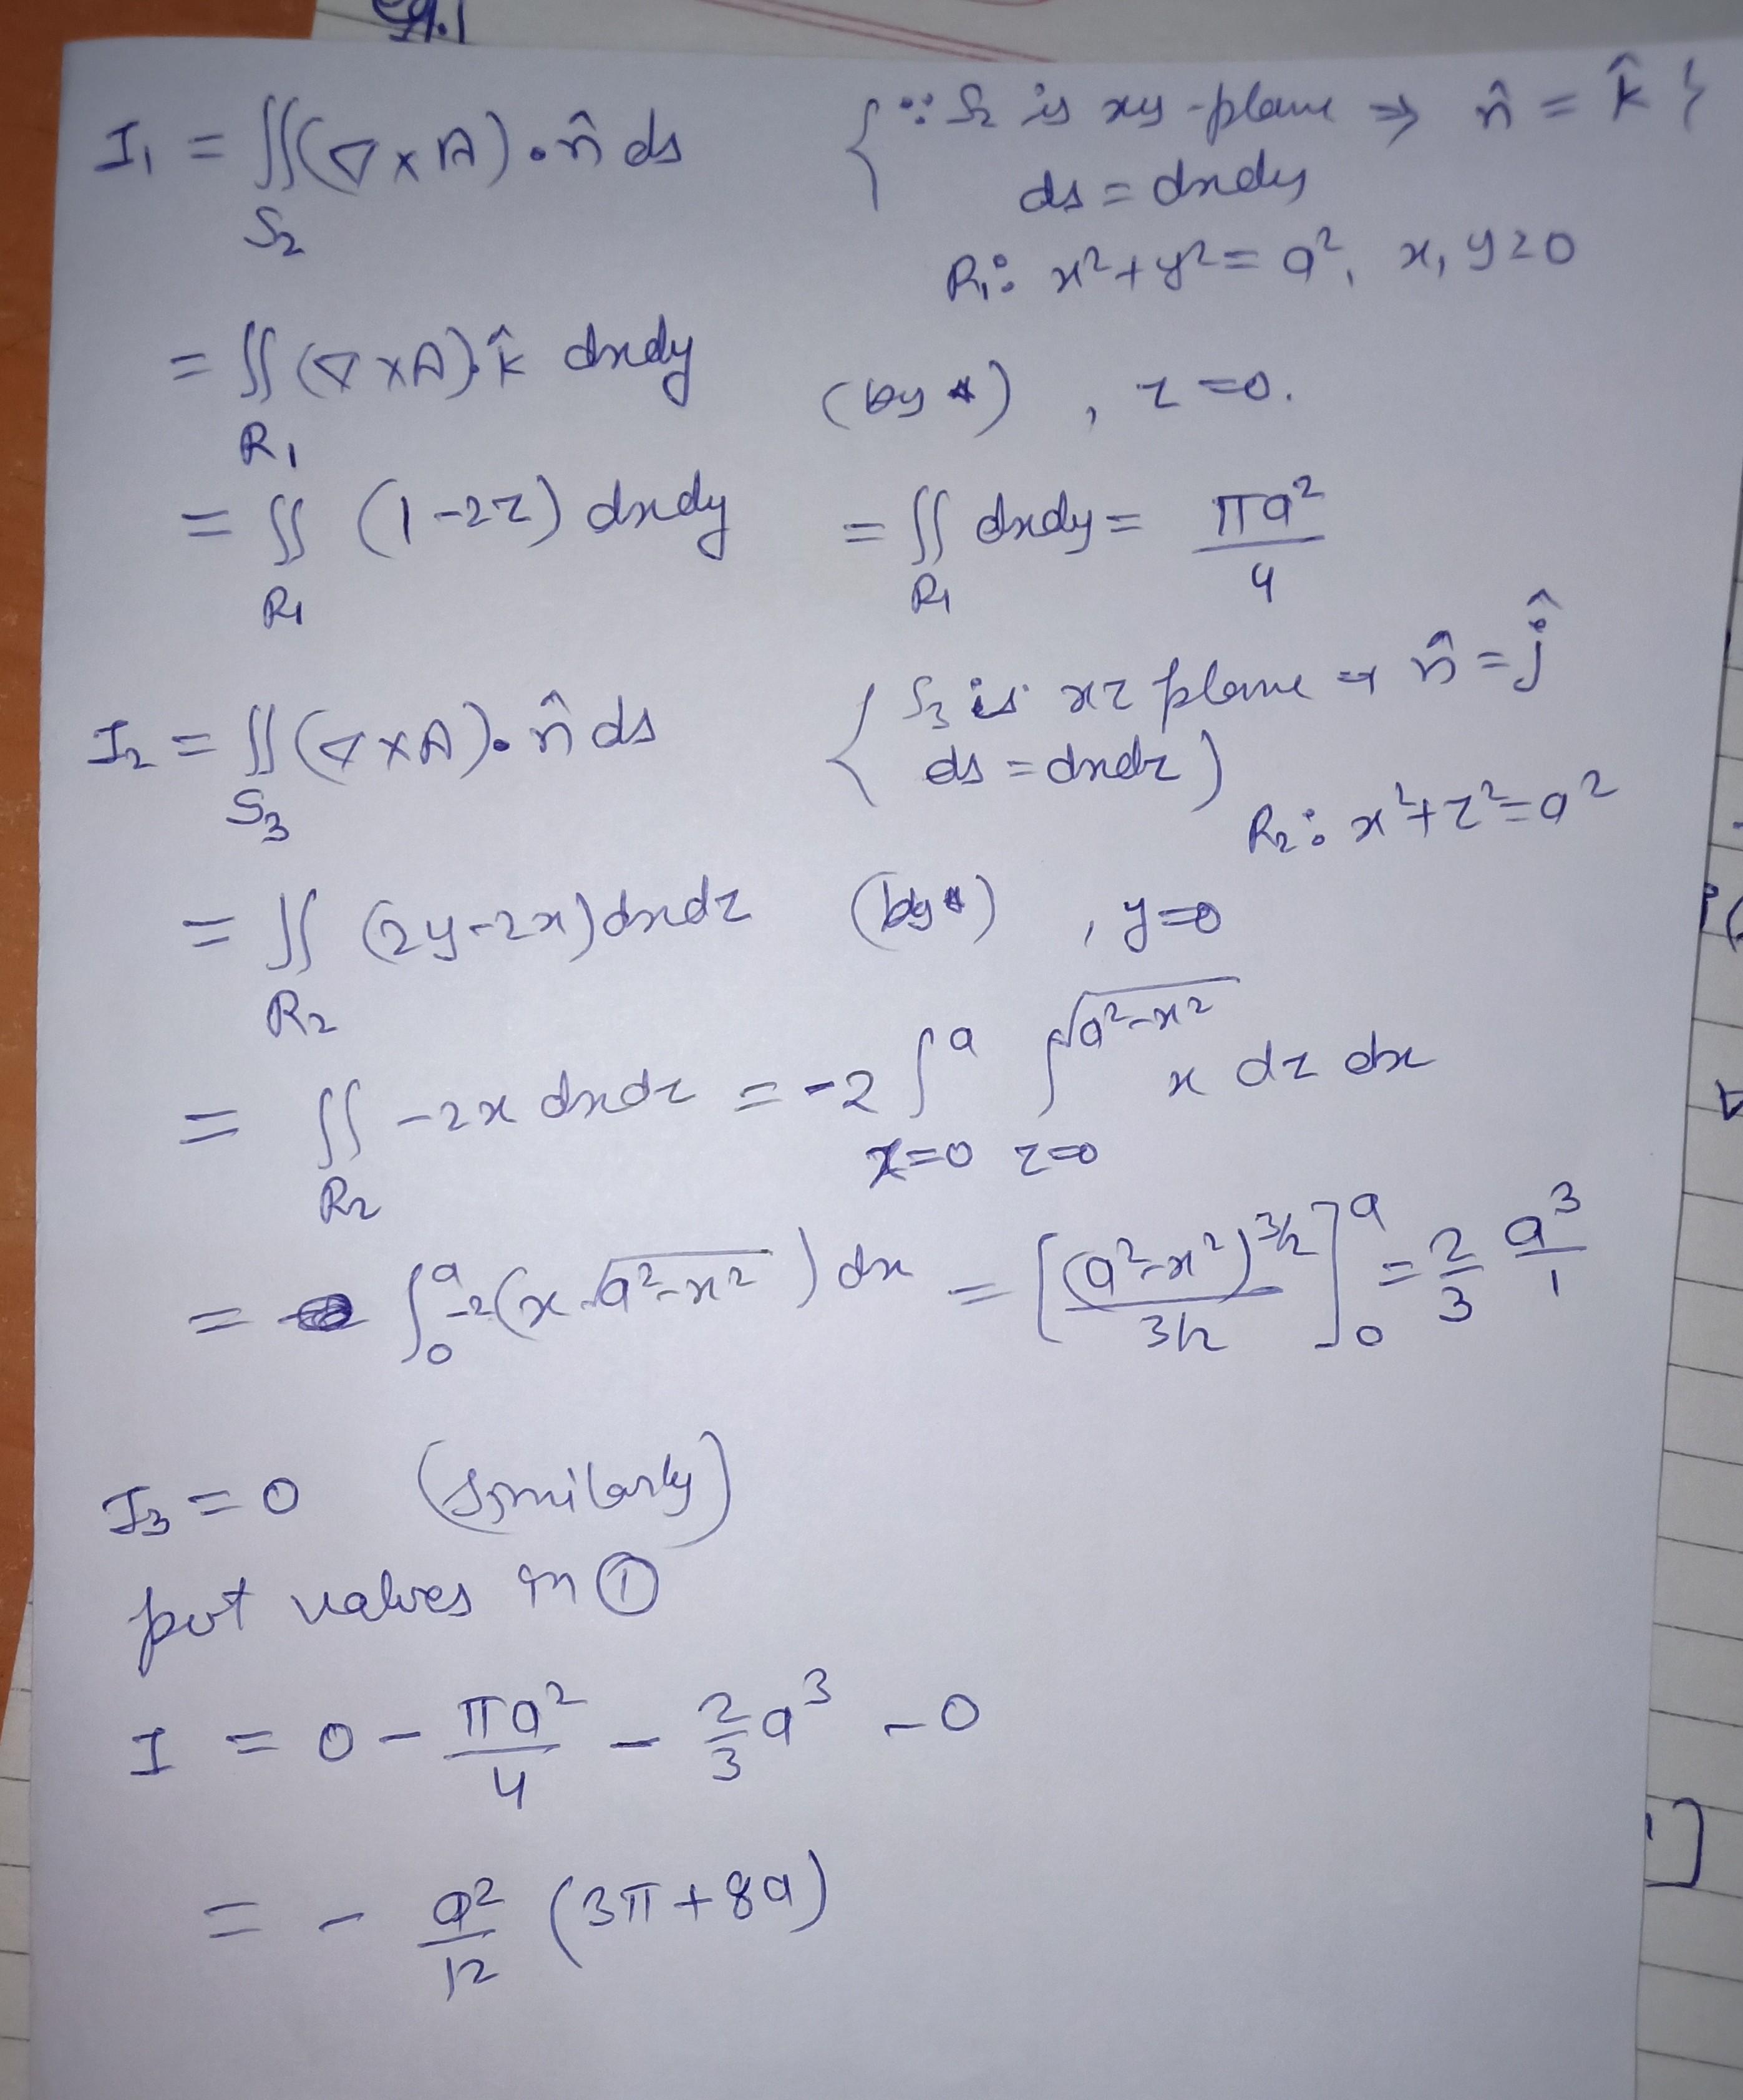 eq.1
I₁ = ∬_{S₂} (∇×A)·n̂ ds {∵ S₂ is xy-plane ⇒ n̂ = k̂}
ds = dxdy
R₁: x²+y² = a², x, y≥0
= ∬_{R₁} (∇×A)·k̂ dxdy (by *), z=0.
= ∬_{R₁} (1-2z) dxdy = ∬_{R₁} dxdy = πa²/4
I₂ = ∬_{S₃} (∇×A)·n̂ ds { S₃ is xz plane ⇒ n̂ = ĵ
ds = dxdz)
R₂: x²+z²=a²
= ∬_{R₂} (2y-2x)dxdz (by *), y=0
= ∬_{R₂} -2x dxdz = -2 ∫_{x=0}^{a} ∫_{z=0}^{√(a²-x²)} x dz dx
= ∫₀^a -2(x √(a²-x²)) dx = [(a²-x²)^{3/2}/(3/2)]₀^a = 2/3 a³/1
I₃ = 0 (similarly)
put values in ①
I = 0 - πa²/4 - 2/3 a³ - 0
= - a²/12 (3π+8a)